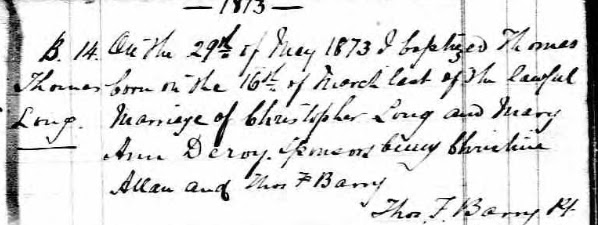 — 1873 —
B. 14. On the 29th of May 1873 I baptized Thomas
Thomas born on the 16th of March last of the lawful
Long. Marriage of Christopher Long and Mary
Ann Deroy. Sponsors being Christine
Allan and Thos F Barry
Thos. F. Barry Pt.